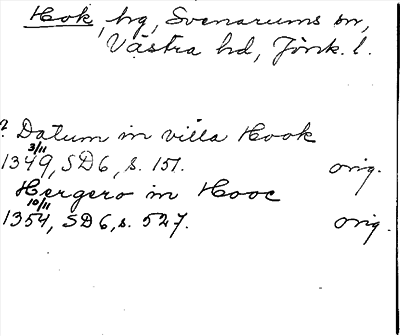 Hok, hg, Svenarums sn,
Västra hd, Jönk. l.
? Datum in villa Hook
3/11
1349, SD6, s. 151. orig.
Hergero in Hooc
10/11
1354, SD6, s. 527. orig.